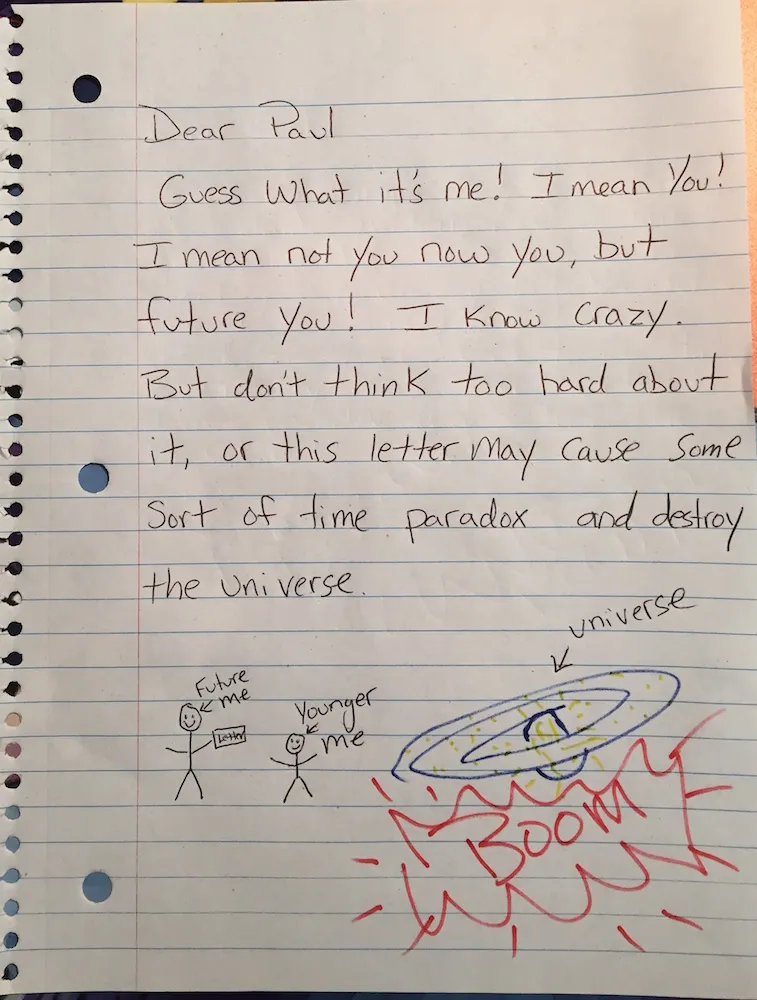 Dear Paul
Guess What it's me! I mean You!
I mean not you now you, but
future you! I know crazy.
But don't think too hard about
it, or this letter may cause some
Sort of time paradox and destroy
the universe.
universe
Future
me
Letter
Younger
me
BOOM